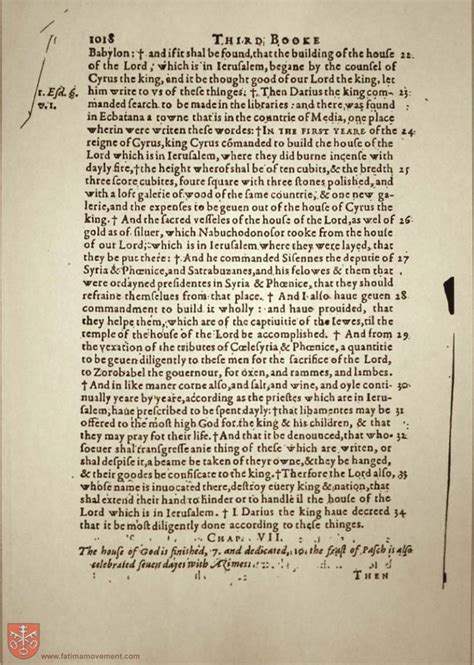 1018 THIRD BOOKE
Babylon: † and if it shal be found, that the building of the house 22.
of the Lord, which is in Ierusalem, begane by the counsel of
Cyrus the king, and it be thought good of our Lord the king, let
1. Esd. 6. him write to vs of these thinges: †. Then Darius the king com- 23
v. 1. manded search to be made in the libraries: and there was found
in Ecbatana a towne that is in the countrie of Media, one place
wherin were writen these wordes: † IN THE FIRST YEARE of the 24
reigne of Cyrus, king Cyrus cōmanded to build the house of the
Lord which is in Ierusalem, where they did burne incense with
dayly fire, † the height wherof shal be of ten cubits, & the bredth 25
three score cubites, foure square with three stones polished, and
with a loft galerie of wood of the same countrie, & one new ga-
lerie, and the expenses to be geuen out of the house of Cyrus the
king. † And the sacred vesseles of the house of the Lord, as wel of 26
gold as of siluer, which Nabuchodonosor tooke from the house
of our Lord, which is in Ierusalem where they were layed, that
they be put there: † And he commanded Sisennes the deputie of 27
Syria & Phœnice, and Satrabuzanes, and his felowes & them that
were ordayned presidentes in Syria & Phœnice, that they should
refraine themselues from that place. † And I also haue geuen 28
commandment to build it wholly: and haue prouided, that
they helpe them, which are of the captiuitie of the Iewes, til the
temple of the house of the Lord be accomplished. † And from 29
the vexation of the tributes of Cœlesyria & Phœnice, a quantitie
to be geuen diligently to these men for the sacrifice of the Lord,
to Zorobabel the gouernour, for oxen, and rammes, and lambes.
† And in like maner corne also, and salt, and wine, and oyle conti- 30
nually yeare by yeare, according as the priestes which are in Ieru-
salem, haue prescribed to be spent dayly: † that libamentes may be 31
offered to the most high God for the king & his children, & that
they may pray for their life. † And that it be denounced, that who- 32
soeuer shal transgresse anie thing of these which are writen, or
shal despise it, a beame be taken of theyr owne, & they be hanged,
& their goodes be confiscate to the king. † Therfore the Lord also, 33
whose name is inuocated there, destroy euery king & nation, that
shal extend their hand to hinder or to handle il the house of the
Lord which is in Ierusalem. † I Darius the king haue decreed 34
that it be most diligently done according to these thinges.
CHAP. VII.
The house of God is finished, 7. and dedicated, 10. the feast of Pasch is also
celebrated seuen dayes with Azimes.
THEN
www.fatimamovement.com